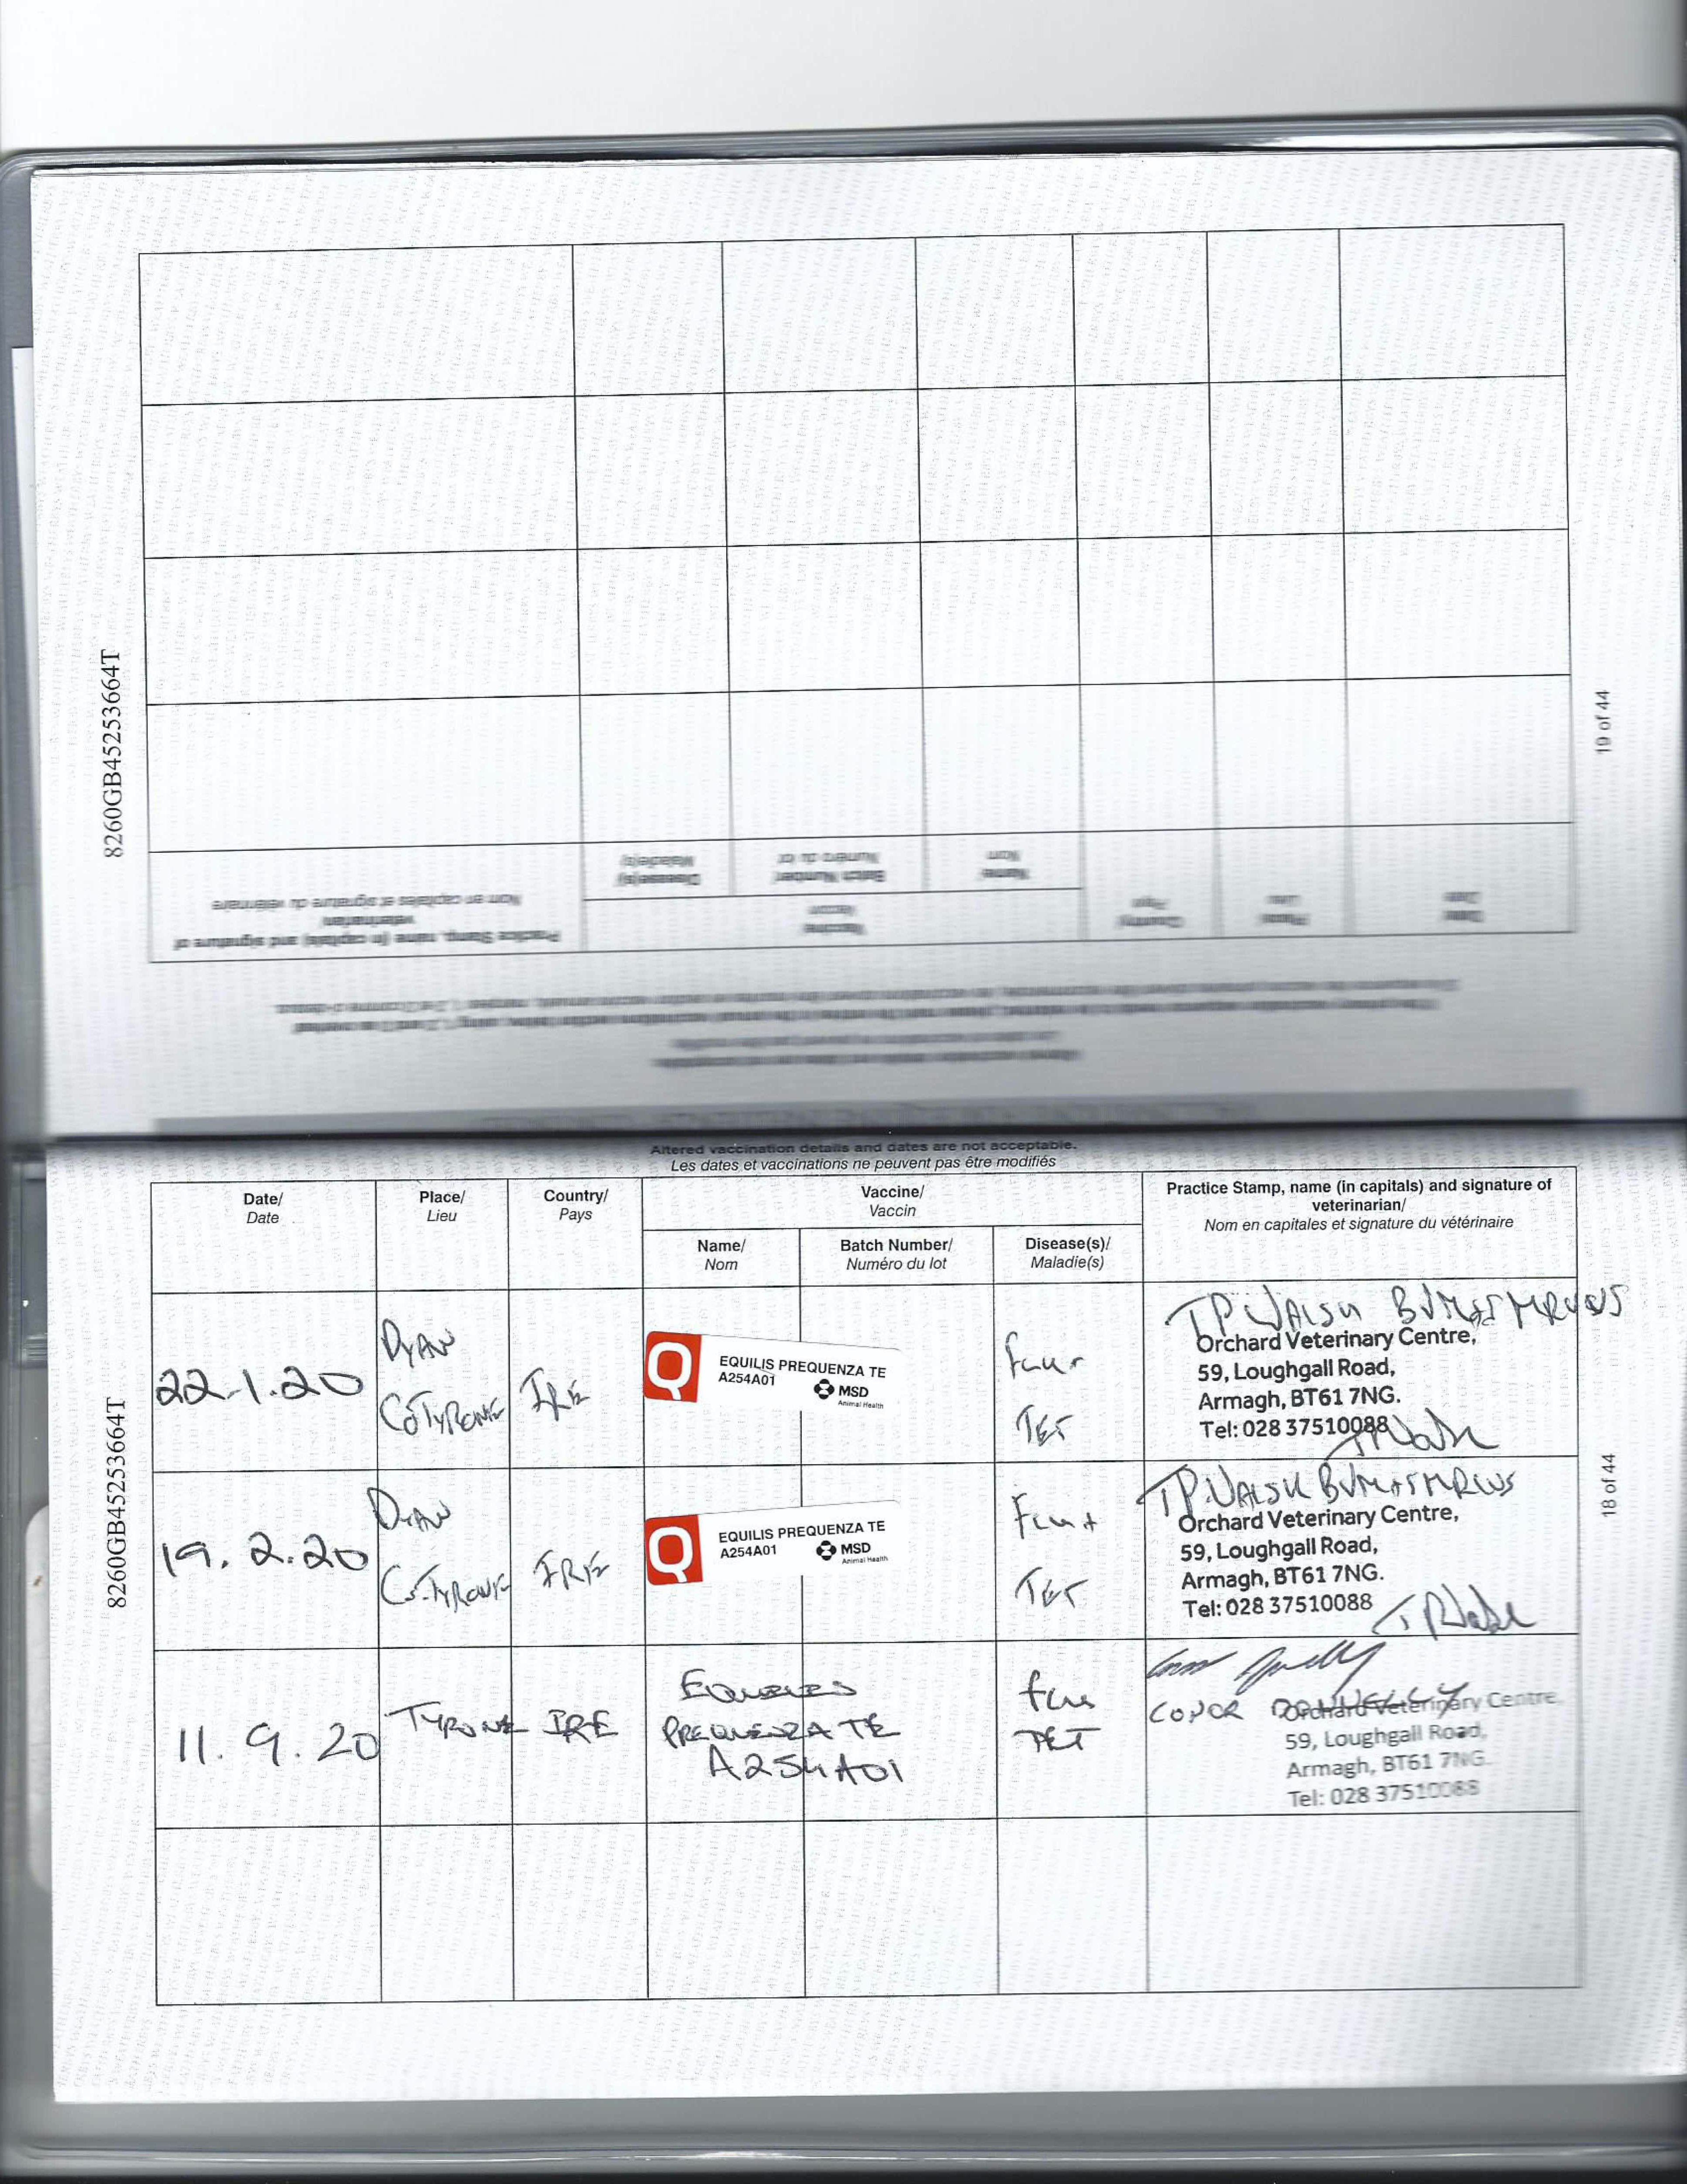 8260GB45253664T
19 of 44
Practice Stamp, name (in capitals) and signature of
veterinarian
Nom en capitales et signature du vétérinaire
Vaccine
Vaccin
Disease(s)/
Maladie(s)
Batch Number
Numéro du lot
Name
Nom
Country
Pays
Place
Lieu
Date
Date
Altered vaccination details and dates are not acceptable.
Les dates et vaccinations ne peuvent pas être modifiés
Date/
Date
Place/
Lieu
Country/
Pays
Vaccine/
Vaccin
Name/
Nom
Batch Number/
Numéro du lot
Disease(s)/
Maladie(s)
Practice Stamp, name (in capitals) and signature of
veterinarian/
Nom en capitales et signature du vétérinaire
22.1.20
DYAN
CO TYRONE
IRE
EQUILIS PREQUENZA TE
A254A01
MSD
Animal Health
TET
TP WALSH BVMS MRCVS
Orchard Veterinary Centre,
59, Loughgall Road,
Armagh, BT61 7NG.
Tel: 028 37510088
19.2.20
DYAN
CO. TYRONE
IRE
EQUILIS PREQUENZA TE
A254A01
MSD
Animal Health
TET
TP. WALSH BVMS MRCVS
Orchard Veterinary Centre,
59, Loughgall Road,
Armagh, BT61 7NG.
Tel: 028 37510088
11.9.20
TYRONE
IRE
PREQUENZA TE
A254A01
flu
TET
CONOR DONNELLY
Orchard Veterinary Centre,
59, Loughgall Road,
Armagh, BT61 7NG.
Tel: 028 37510088
8260GB45253664T
18 of 44